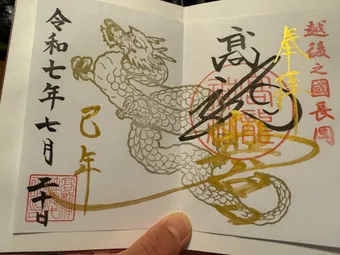 越後之國長岡
奉拝
髙龍
巳年
令和七年七月二十日